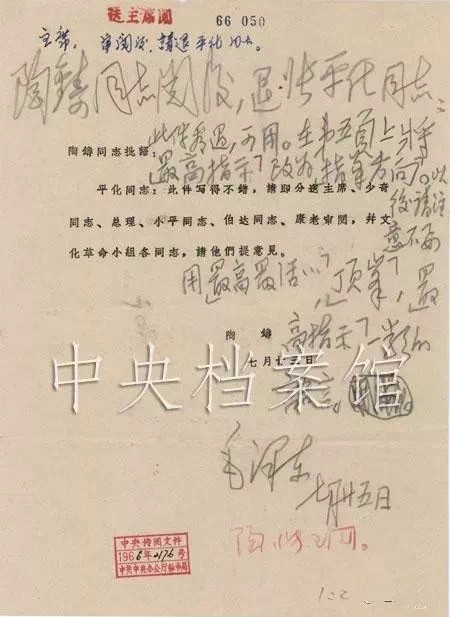 送主席閱
66 050
主席：审阅后，請退平化同志。
陶鑄同志阅后，退张平化同志：
此件看过，可用。在第五页上将
「最高指示」改为「指导方向」。以
后请注
意不要
用「最高最活…」，「顶峯」，「最
高指示」一类的
语言。
毛泽东
七月廿五日
陶鑄同志批語：
平化同志：此件写得不錯，請即分送主席、少奇
同志、总理、小平同志、伯达同志、康老审閱，幷文
化革命小組各同志，請他們提意見。
陶 鑄
七月廿三日
中央档案馆
中央传閱文件
1966年2176号
中共中央办公厅秘书局